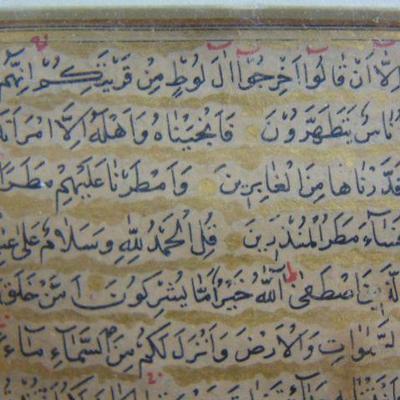 اِلَّا اَنْ قَالُوا اَخْرِجُوا اٰلَ لُوطٍ مِنْ قَرْيَتِكُمْ اِنَّهُمْ
اُنَاسٌ يَتَطَهَّرُونَ فَاَنْجَيْنَاهُ وَاَهْلَهُ اِلَّا امْرَاَتَهُ
قَدَّرْنَاهَا مِنَ الْغَابِرِينَ وَاَمْطَرْنَا عَلَيْهِمْ مَطَرًا
فَسَاءَ مَطَرُ الْمُنْذَرِينَ قُلِ الْحَمْدُ لِلّٰهِ وَسَلَامٌ عَلٰى
الَّذِينَ اصْطَفٰى اٰللّٰهُ خَيْرٌ اَمَّا يُشْرِكُونَ اَمَّنْ خَلَقَ
السَّمٰوَاتِ وَالْاَرْضَ وَاَنْزَلَ لَكُمْ مِنَ السَّمَاءِ مَاءً